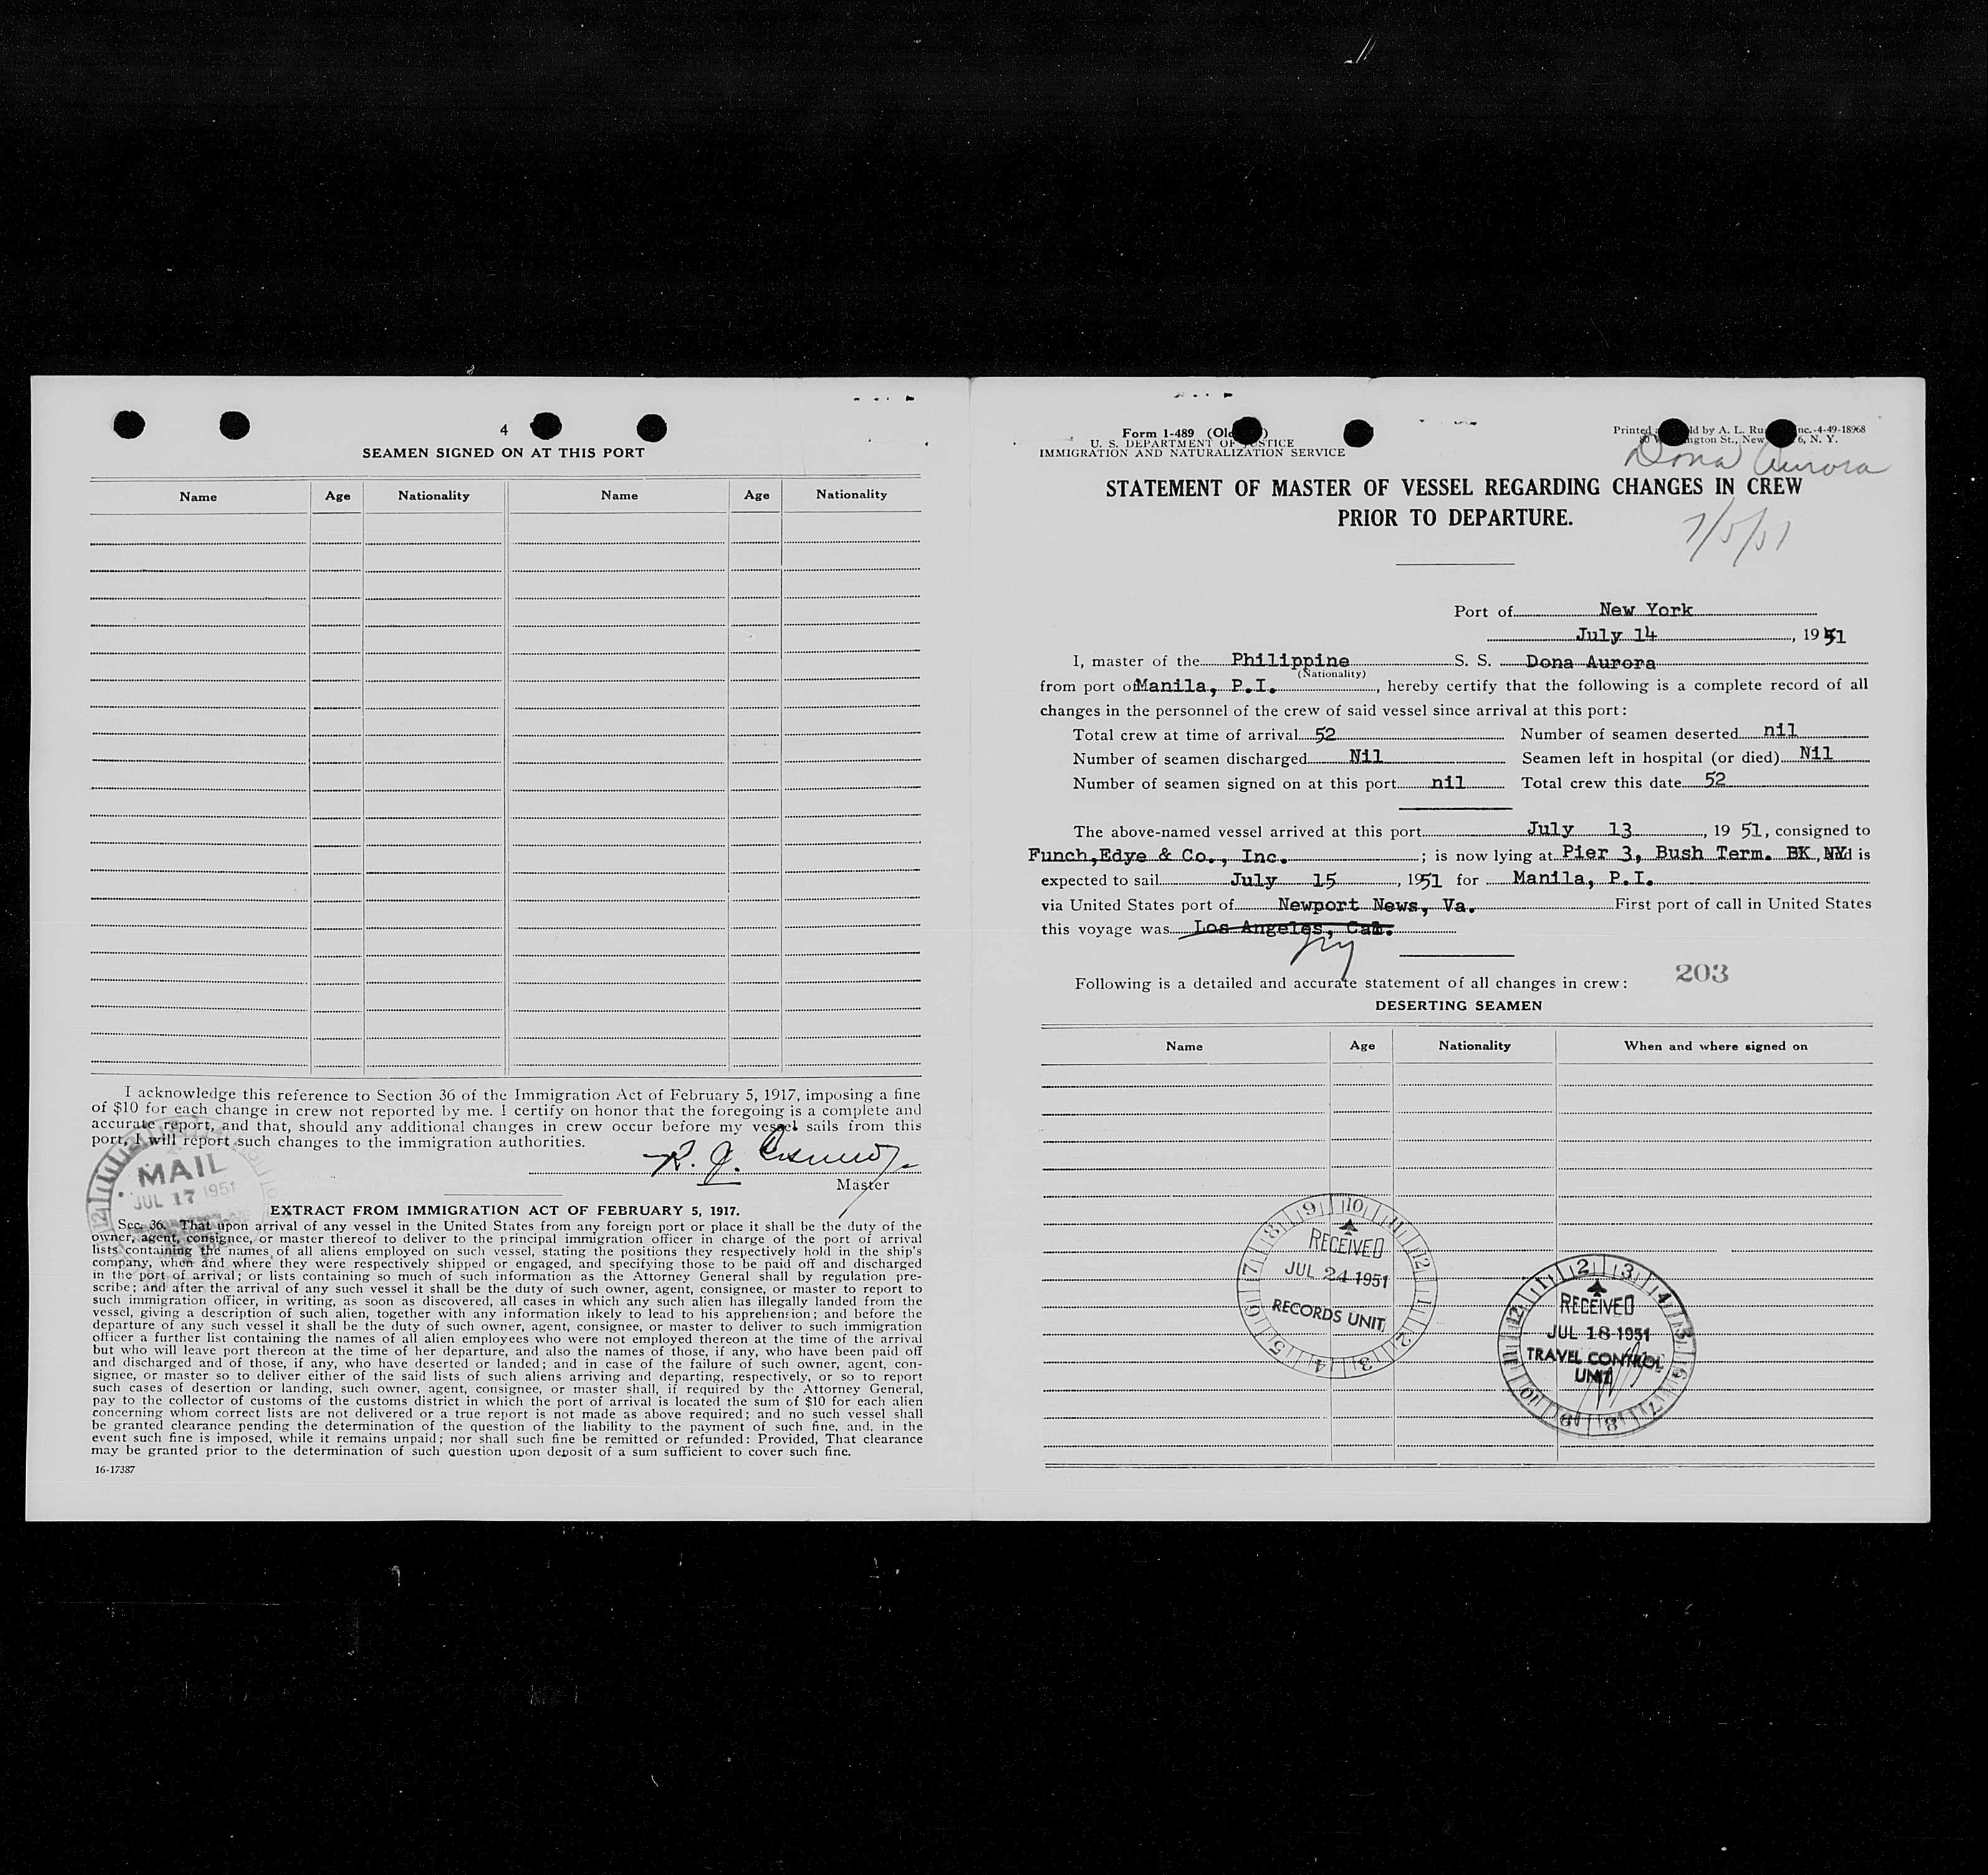 4
SEAMEN SIGNED ON AT THIS PORT
Name Age Nationality Name Age Nationality
I acknowledge this reference to Section 36 of the Immigration Act of February 5, 1917, imposing a fine
of $10 for each change in crew not reported by me. I certify on honor that the foregoing is a complete and
accurate report, and that, should any additional changes in crew occur before my vessel sails from this
port, I will report such changes to the immigration authorities.
R. J.
Master
MAIL
JUL 17 1951
EXTRACT FROM IMMIGRATION ACT OF FEBRUARY 5, 1917.
Sec. 36. That upon arrival of any vessel in the United States from any foreign port or place it shall be the duty of the
owner, agent, consignee, or master thereof to deliver to the principal immigration officer in charge of the port of arrival
lists containing the names of all aliens employed on such vessel, stating the positions they respectively hold in the ship's
company, when and where they were respectively shipped or engaged, and specifying those to be paid off and discharged
in the port of arrival; or lists containing so much of such information as the Attorney General shall by regulation pre-
scribe; and after the arrival of any such vessel it shall be the duty of such owner, agent, consignee, or master to report to
such immigration officer, in writing, as soon as discovered, all cases in which any such alien has illegally landed from the
vessel, giving a description of such alien, together with any information likely to lead to his apprehension; and before the
departure of any such vessel it shall be the duty of such owner, agent, consignee, or master to deliver to such immigration
officer a further list containing the names of all alien employees who were not employed thereon at the time of the arrival
but who will leave port thereon at the time of her departure, and also the names of those, if any, who have been paid off
and discharged and of those, if any, who have deserted or landed; and in case of the failure of such owner, agent, con-
signee, or master so to deliver either of the said lists of such aliens arriving and departing, respectively, or so to report
such cases of desertion or landing, such owner, agent, consignee, or master shall, if required by the Attorney General,
pay to the collector of customs of the customs district in which the port of arrival is located the sum of $10 for each alien
concerning whom correct lists are not delivered or a true report is not made as above required; and no such vessel shall
be granted clearance pending the determination of the question of the liability to the payment of such fine, and, in the
event such fine is imposed, while it remains unpaid; nor shall such fine be remitted or refunded: Provided, That clearance
may be granted prior to the determination of such question upon deposit of a sum sufficient to cover such fine.
16-17387
Form 1-489
U. S. DEPARTMENT OF JUSTICE
IMMIGRATION AND NATURALIZATION SERVICE
Printed by A. L. Inc.-4-49-18968
St., New 6, N. Y.
Dona Aurora
STATEMENT OF MASTER OF VESSEL REGARDING CHANGES IN CREW
PRIOR TO DEPARTURE.
7/5/51
Port of New York
July 14, 1951
I, master of the Philippine S. S. Dona Aurora
(Nationality)
from port of Manila, P.I., hereby certify that the following is a complete record of all
changes in the personnel of the crew of said vessel since arrival at this port:
Total crew at time of arrival 52 Number of seamen deserted nil
Number of seamen discharged Nil Seamen left in hospital (or died) Nil
Number of seamen signed on at this port nil Total crew this date 52
The above-named vessel arrived at this port July 13, 19 51, consigned to
Funch,Edye & Co., Inc.; is now lying at Pier 3, Bush Term. BK, NY and is
expected to sail July 15, 1951 for Manila, P.I.
via United States port of Newport News, Va. First port of call in United States
this voyage was Los Angeles, Cal.
NY
Following is a detailed and accurate statement of all changes in crew: 203
DESERTING SEAMEN
Name Age Nationality When and where signed on
RECEIVED
JUL 24 1951
RECORDS UNIT
RECEIVED
JUL 18 1951
TRAVEL CONTROL
UNIT